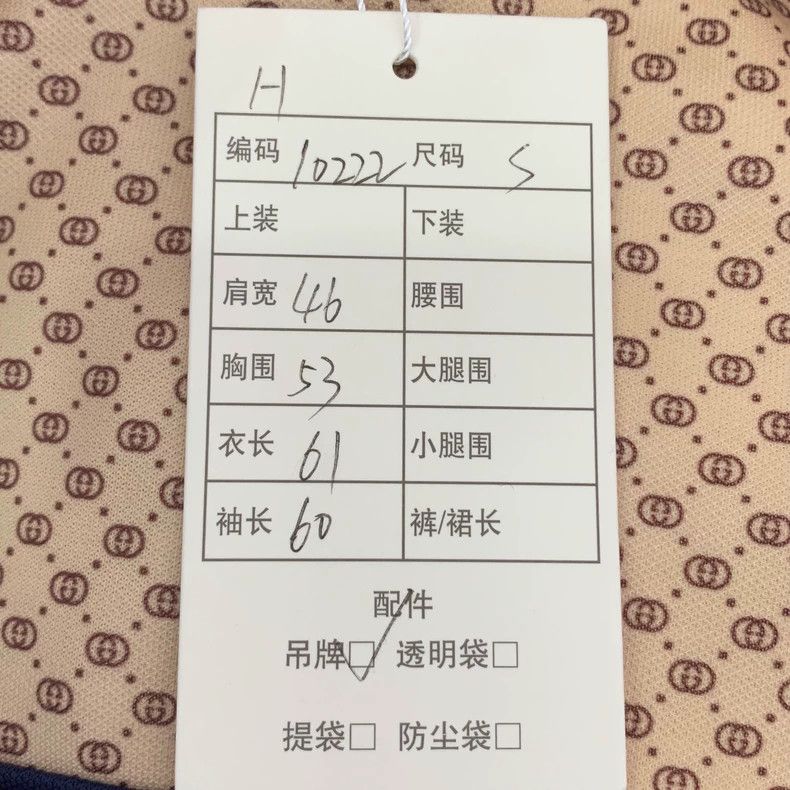 H
编码 10222 尺码 S
上装 下装
肩宽 46 腰围
胸围 53 大腿围
衣长 61 小腿围
袖长 60 裤/裙长
配件
吊牌☑ 透明袋□
提袋□ 防尘袋□